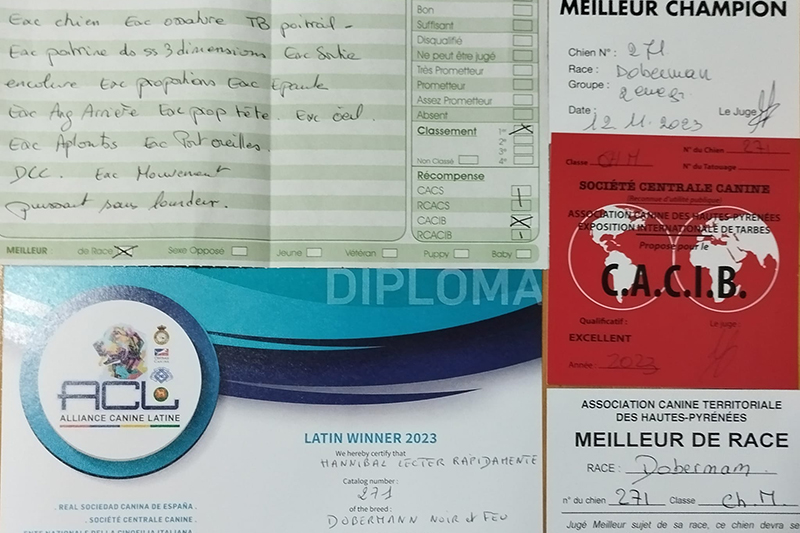 Exc chien Exc ossature TB poitrail -
Exc poitrine ds ss 3 dimensions Exc Sortie
encolure Exc proportions Exc Epaule
Exc Ang Arrière Exc prop tête. Exc œil.
Exc Aplombs Exc Port oreilles.
DCC. Exc Mouvement
puissant sans lourdeur.
MEILLEUR : de Race Sexe Opposé Jeune Vétéran Puppy Baby
Bon
Suffisant
Disqualifié
Ne peut être jugé
Très Prometteur
Prometteur
Assez Prometteur
Absent
Classement 1er
2e
3e
Non Classé 4e
Récompense
CACS
RCACS
CACIB
RCACIB
MEILLEUR CHAMPION
Chien N° : 271
Race : Doberman
Groupe :
Date : 12.11.2023 Le Juge
N° du Chien 271
Classe CH M N° du Tatouage
SOCIÉTÉ CENTRALE CANINE
(Reconnue d'utilité publique)
ASSOCIATION CANINE DES HAUTES-PYRÉNÉES
EXPOSITION INTERNATIONALE DE TARBES
Propose pour le
C.A.C.I.B.
Qualificatif : Le juge :
EXCELLENT
Année : 2023
DIPLOMA
ACL
ALLIANCE CANINE LATINE
LATIN WINNER 2023
We hereby certify that
HANNIBAL LECTER RAPIDAMENTE
Catalog number :
271
of the breed :
DOBERMANN NOIR et FEU
. REAL SOCIEDAD CANINA DE ESPAÑA .
. SOCIÉTÉ CENTRALE CANINE .
ENTE NAZIONALE DELLA CINOFILIA ITALIANA
ASSOCIATION CANINE TERRITORIALE
DES HAUTES-PYRÉNÉES
MEILLEUR DE RACE
RACE : Dobermam
n° du chien 271 Classe Ch.M.
Jugé Meilleur sujet de sa race, ce chien devra se